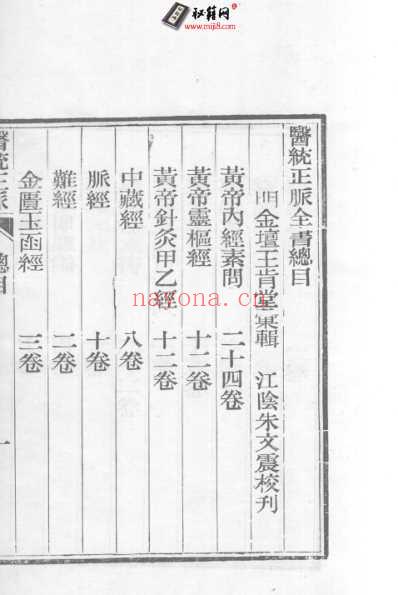 秘籍网
www.miji8.com
醫統正脉全書總目
明金壇王肯堂彙輯 江陰朱文震校刊
黃帝內經素問 二十四卷
黃帝靈樞經 十二卷
黃帝針灸甲乙經 十二卷
中藏經 八卷
脈經 十卷
難經 二卷
金匱玉函經 三卷
醫統正脉 總目 一
nayona.cn